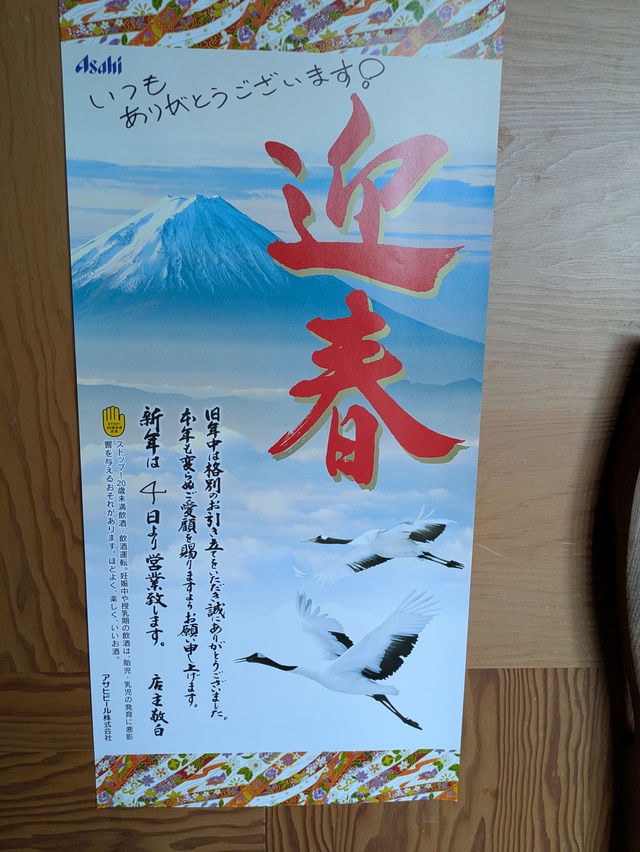 Asahi
いつも
ありがとうございます!
迎春
旧年中は格別のお引き立をいただき誠にありがとうございました。
本年も変らぬご愛顧を賜りますようお願い申し上げます。
新年は 4 日より営業致します。
店主敬白
ストップ!20歳未満飲酒・飲酒運転。妊娠中や授乳期の飲酒は、胎児・乳児の発育に悪影
響を与えるおそれがあります。ほどよく、楽しく、いいお酒。
アサヒビール株式会社